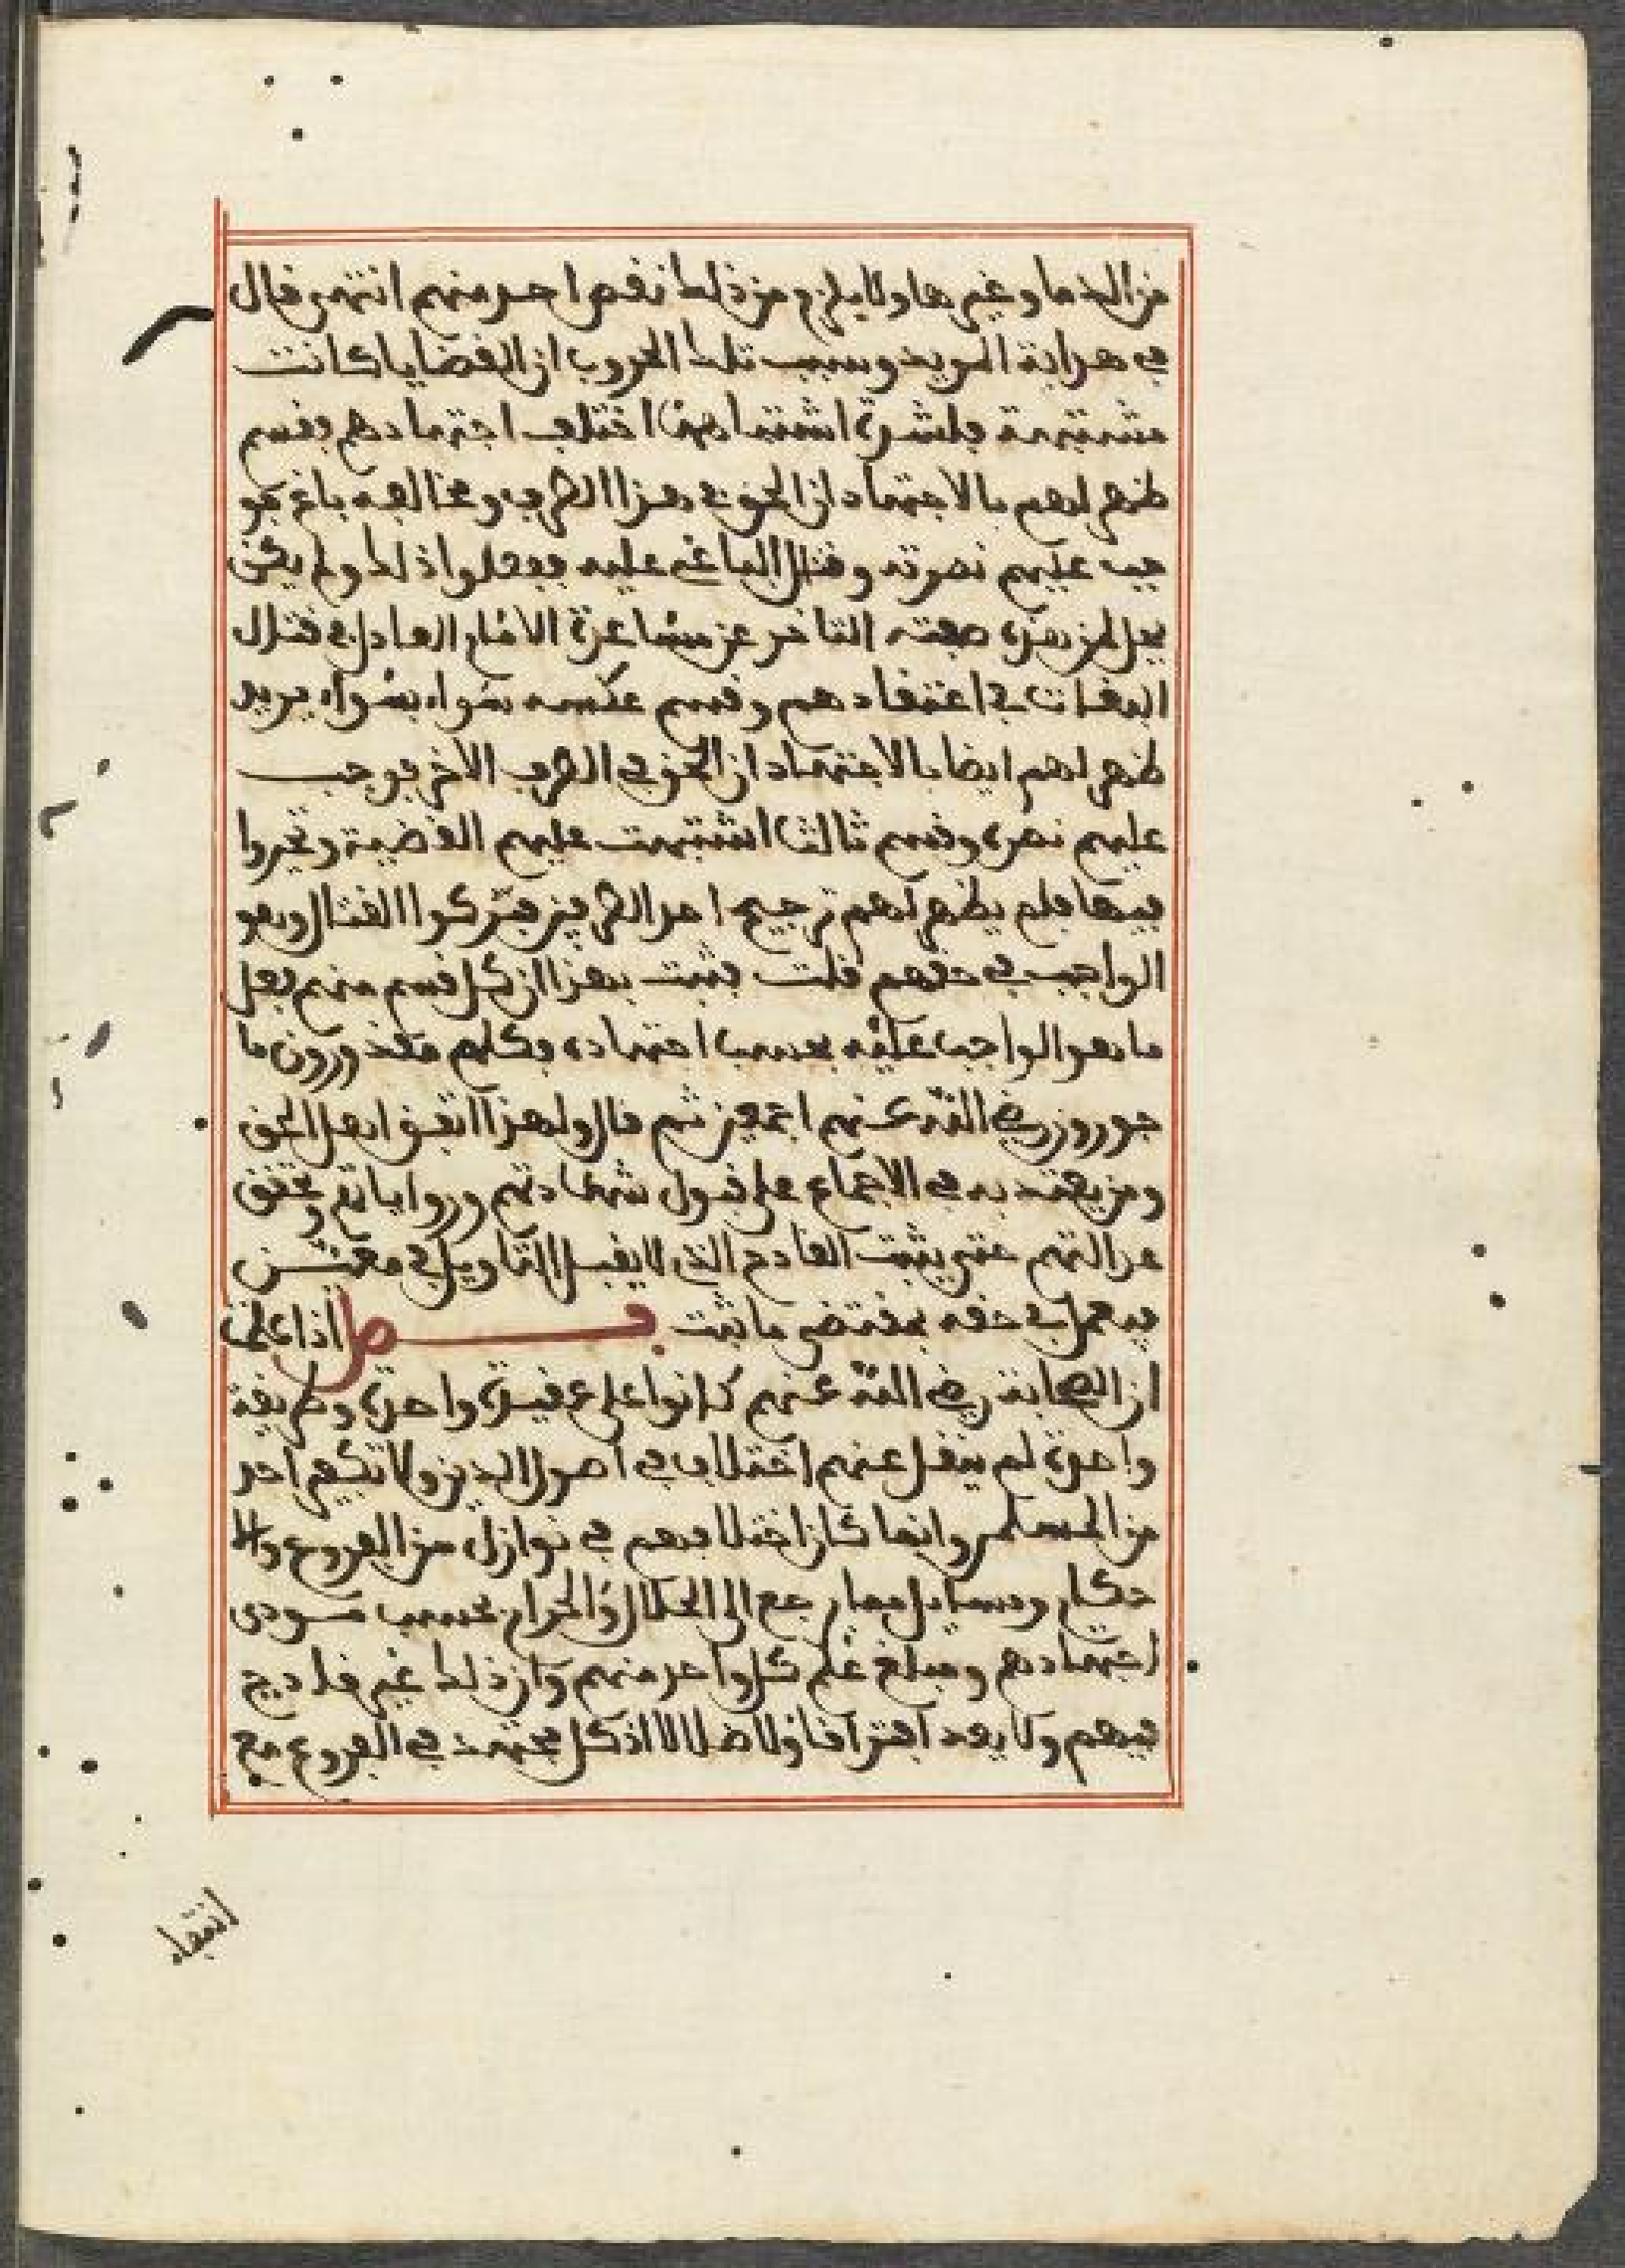 من الدما وغيرها ولا يلزم من ذلك نقص احد منهم انتهى قال
في هداية المريد وسبب تلك الحروب ان القضايا كانت
مشتبهة فلشدة اشتباهها اختلف اجتهادهم فقسم
ظهر لهم بالاجتهاد ان الحق في هذا الطرف ومخالفه باغ فو
جب عليهم نصرته وقتال الباغي عليه ففعلوا ذلك ولم يكن
يحل لمن هذه صفته التاخر عن مساعدة الامام العادل في قتال
البغات في اعتقادهم وقسم عكسه سواء بسواء يريد
ظهر لهم ايضا بالاجتهاد ان الحق في الطرف الاخر فوجب
عليهم نصره وقسم ثالث اشتبهت عليهم القضية وتحيروا
فيها فلم يظهر لهم ترجيح احد الطرفين فتركوا القتال وهو
الواجب في حقهم قلت فثبت بهذا ان كل قسم منهم فعل
ما هو الواجب عليه بحسب اجتهاده فكلهم معذورون ما
جورون رضي الله عنهم اجمعين ثم قال ولهذا اتفق اهل الحق
ومن يعتد به في الاجماع على قبول شهادتهم ورواياتهم وتحقق
عدالتهم حتى يثبت القادح الذي لا يقبل التاويل في معين
فيعمل في حقه بمقتضى ما ثبت فصل اذا علمت
ان الصحابة رضي الله عنهم كانوا على عقيدة واحدة وطريقة
واحدة لم ينقل عنهم اختلاف في اصول الدين ولا تكفير احد
من المسلمين وانما كان اختلافهم في نوازل من الفروع والا
حكام ومسايل مما يرجع الى الحلال والحرام بحسب مودى
اجتهادهم ومبلغ علم كل واحد منهم وان ذلك غير قادح
فيهم ولا يعد افتراقا ولا ضلالا اذ كل مجتهد في الفروع مع
انتفاء